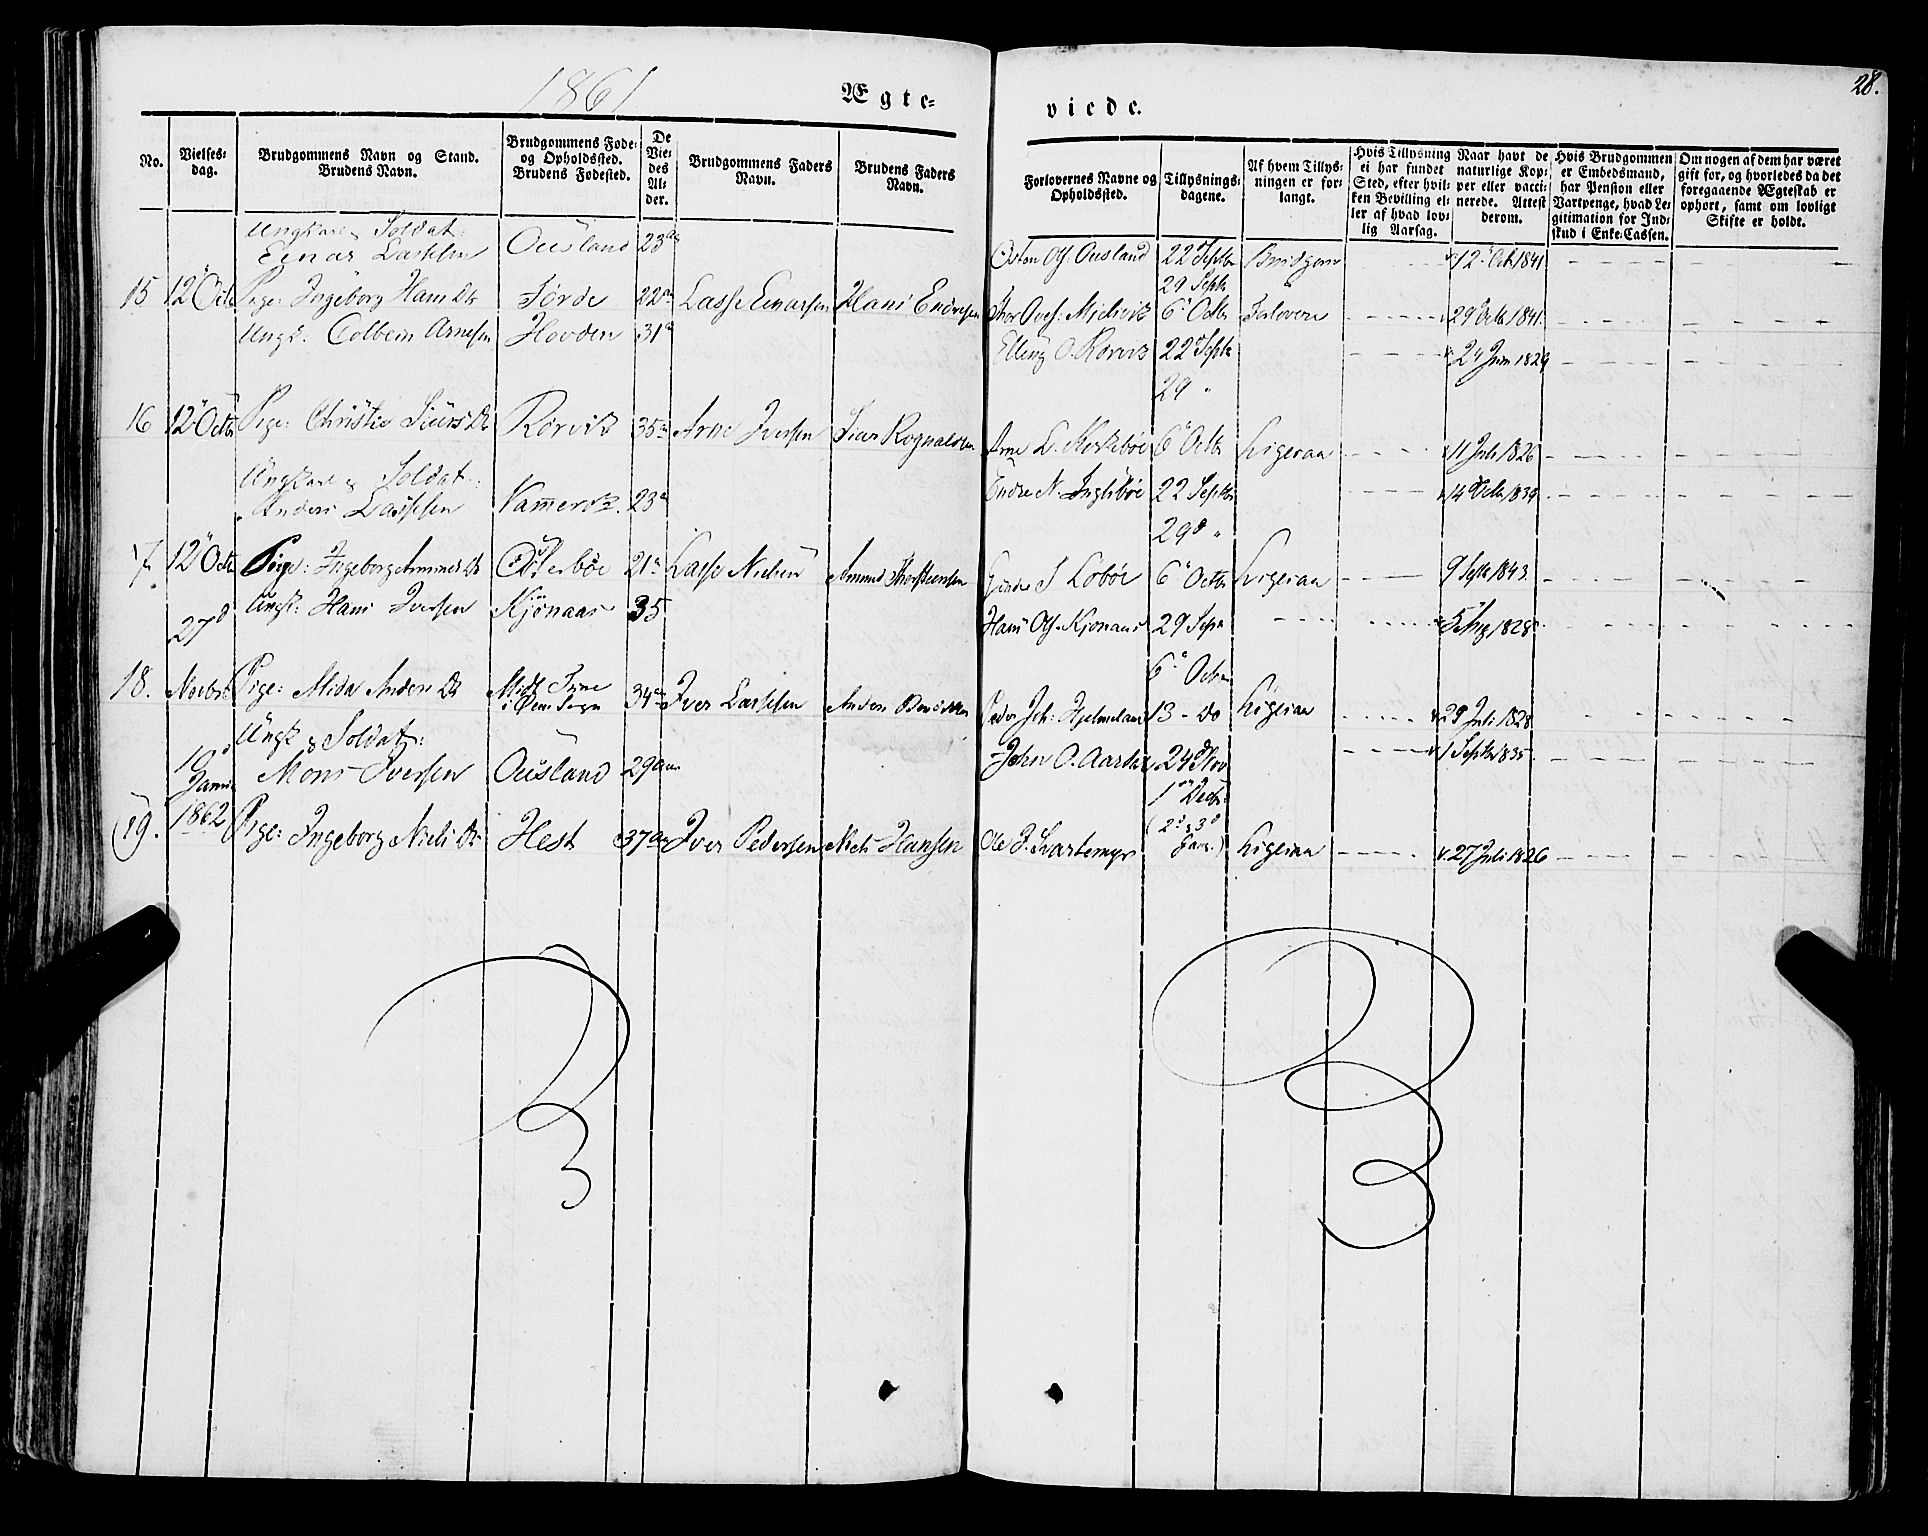 1861
Ægte-
viede.
28.
No.
Vielses-
dag.
Brudgommens Navn og Stand.
Brudens Navn.
Brudgommens Føde-
og Opholdssted.
Brudens Fødested.
De
Vie-
des
Al-
der.
Brudgommens Faders
Navn.
Brudens Faders
Navn.
Forlovernes Navne og
Opholdssted.
Tillysnings-
dagene.
Af hvem Tillys-
ningen er for-
langt.
Hvis Tillysning
ei har fundet
Sted, efter hvil-
ken Bevilling el-
ler af hvad lov-
lig Aarsag.
Naar havt de
naturlige Kop-
per eller vacci-
nerede. Attest
derom.
Hvis Brudgommen
er Embedsmand,
har Pension eller
Vartpenge, hvad Le-
gitimation for Ind-
skud i Enke-Cassen.
Om nogen af dem har været
gift før, og hvorledes da det
foregaaende Ægteskab er
ophørt, samt om lovligt
Skifte er holdt.
Ungkarl og Soldat
Einar Lassesen Ousland 23 Osten Ols. Ousland 22 Septbr Brudgom v. 12 Octb 1841
29 Septb
15 12 Octb Pige: Ingeborg Hans Dr Førde 22 Lasse Einarsen Hans Endresen 6 Octb Forlovere v. 29 Octb 1841
Ungk: Colbein Arnesen Hovden 31 Elling O. Rørvik 22 Septb v. 24 Juni 1829
29 "
16 12 Octb Pige: Christie Siurs Dr Rørvik 35 Arne Iversen Siur Rognaldsen Arne L. 6 Octb Ligesaa v. 11 Juli 1826
Ungkarl og Soldat:
Anders Lassesen Vammervik 23 Endre N. Inglibøe 22 Septb v. 14 Octb 1839
29 "
17 12 Octb Pige: Ingeborg Amunds Dr Østerbøe 21 Lasse Nielsen Amund Thorsteensen S Løbøe 6 Octb Ligesaa 9 Septb 1843
Ungk: Hans Iversen Kjønaas 35 Hans Ols. Kjønaas 29 Septb v. 5 Aug 1828
27
6 Octbr
18. Novbr Pige: Anders Dr 34 Iver Lassesen Anders Peder Joh: Hjelmeland 13 - do Ligesaa v. 29 Juli 1828
Ungk og Soldat:
Mons Iversen Ousland 29 John O. 24 Nov v. 1 Septb 1835
Janu 1 Decb
1862 (2 & 3
19. Pige: Ingeborg Niels Dr Hest 37 Iver Pedersen Niels Hansen Ole P. Svartemyr Gang.) Ligesaa v. 27 Juli 1826